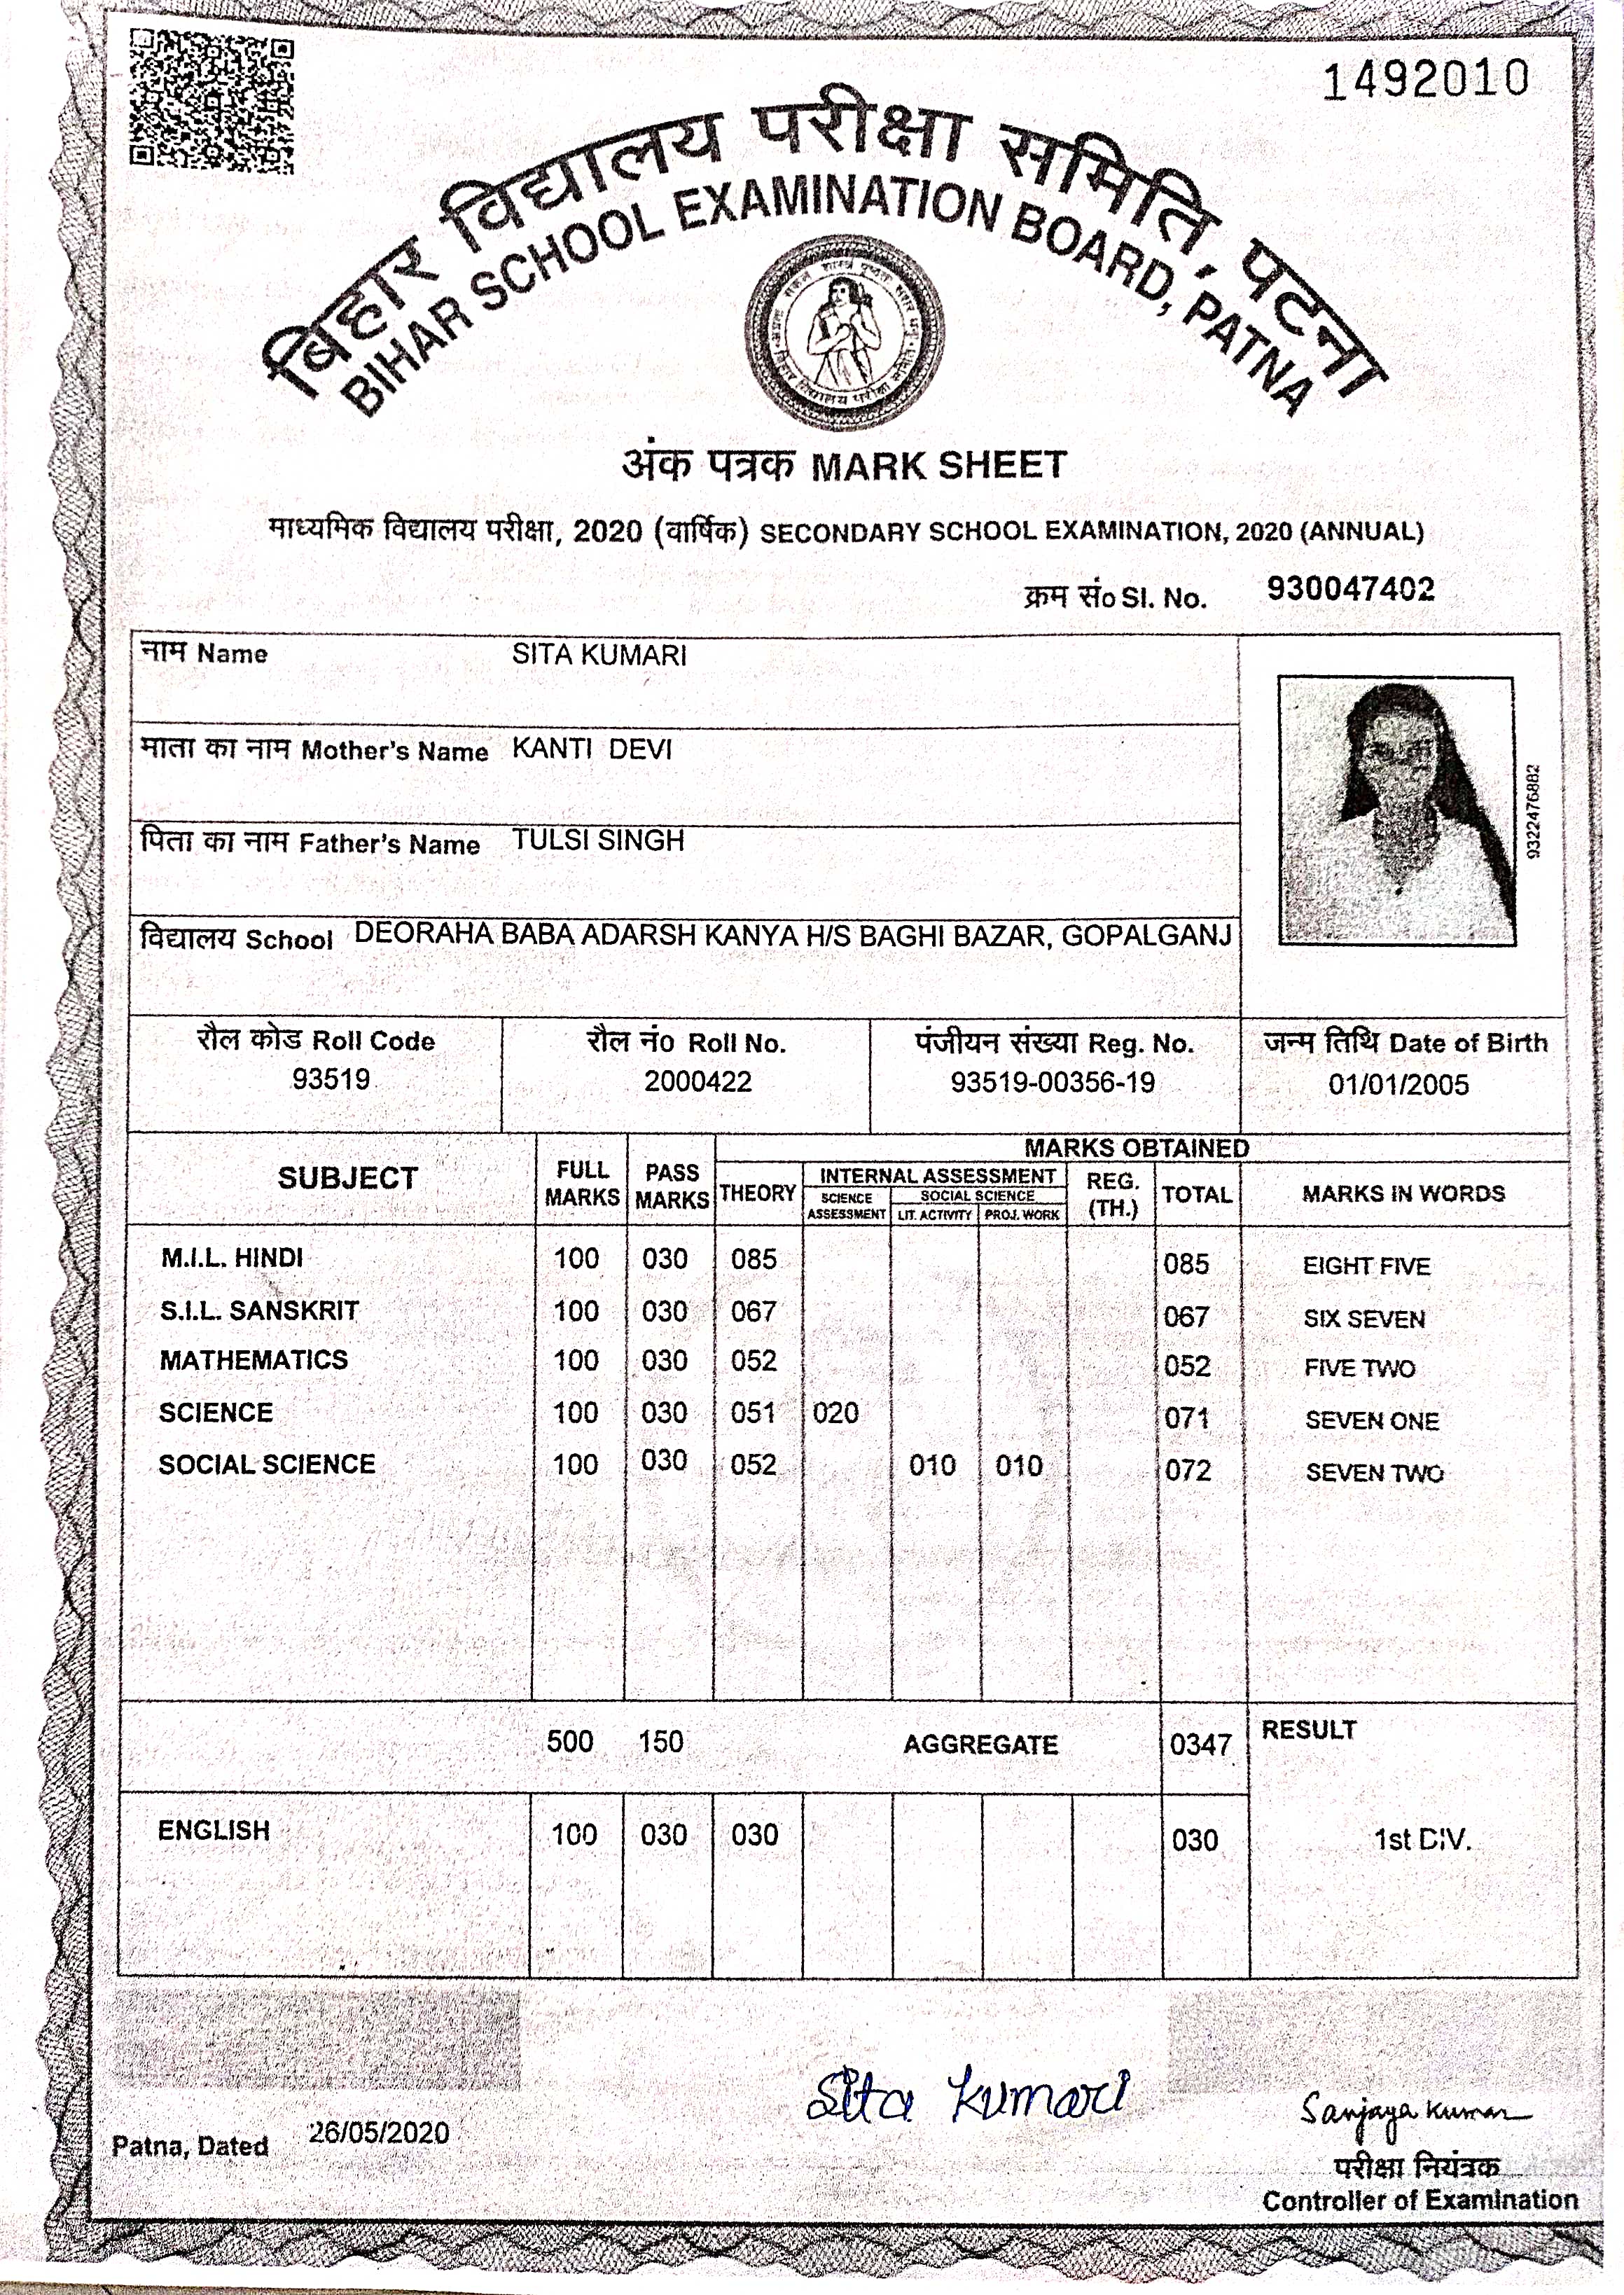 1492010
बिहार विद्यालय परीक्षा समिति, पटना
BIHAR SCHOOL EXAMINATION BOARD, PATNA
अंक पत्रक MARK SHEET
माध्यमिक विद्यालय परीक्षा, 2020 (वार्षिक) SECONDARY SCHOOL EXAMINATION, 2020 (ANNUAL)
क्रम सं० Sl. No. 930047402
नाम Name SITA KUMARI
माता का नाम Mother's Name KANTI DEVI
पिता का नाम Father's Name TULSI SINGH
9322476882
विद्यालय School DEORAHA BABA ADARSH KANYA H/S BAGHI BAZAR, GOPALGANJ
रौल कोड Roll Code रौल नं० Roll No. पंजीयन संख्या Reg. No. जन्म तिथि Date of Birth
93519 2000422 93519-00356-19 01/01/2005
SUBJECT FULL MARKS PASS MARKS MARKS OBTAINED
THEORY INTERNAL ASSESSMENT REG. (TH.) TOTAL MARKS IN WORDS
SCIENCE ASSESSMENT SOCIAL SCIENCE
LIT. ACTIVITY PROJ. WORK
M.I.L. HINDI 100 030 085 085 EIGHT FIVE
S.I.L. SANSKRIT 100 030 067 067 SIX SEVEN
MATHEMATICS 100 030 052 052 FIVE TWO
SCIENCE 100 030 051 020 071 SEVEN ONE
SOCIAL SCIENCE 100 030 052 010 010 072 SEVEN TWO
500 150 AGGREGATE 0347 RESULT
ENGLISH 100 030 030 030 1st DIV.
Sita Kumari
Sanjaya Kumar
Patna, Dated 26/05/2020
परीक्षा नियंत्रक
Controller of Examination